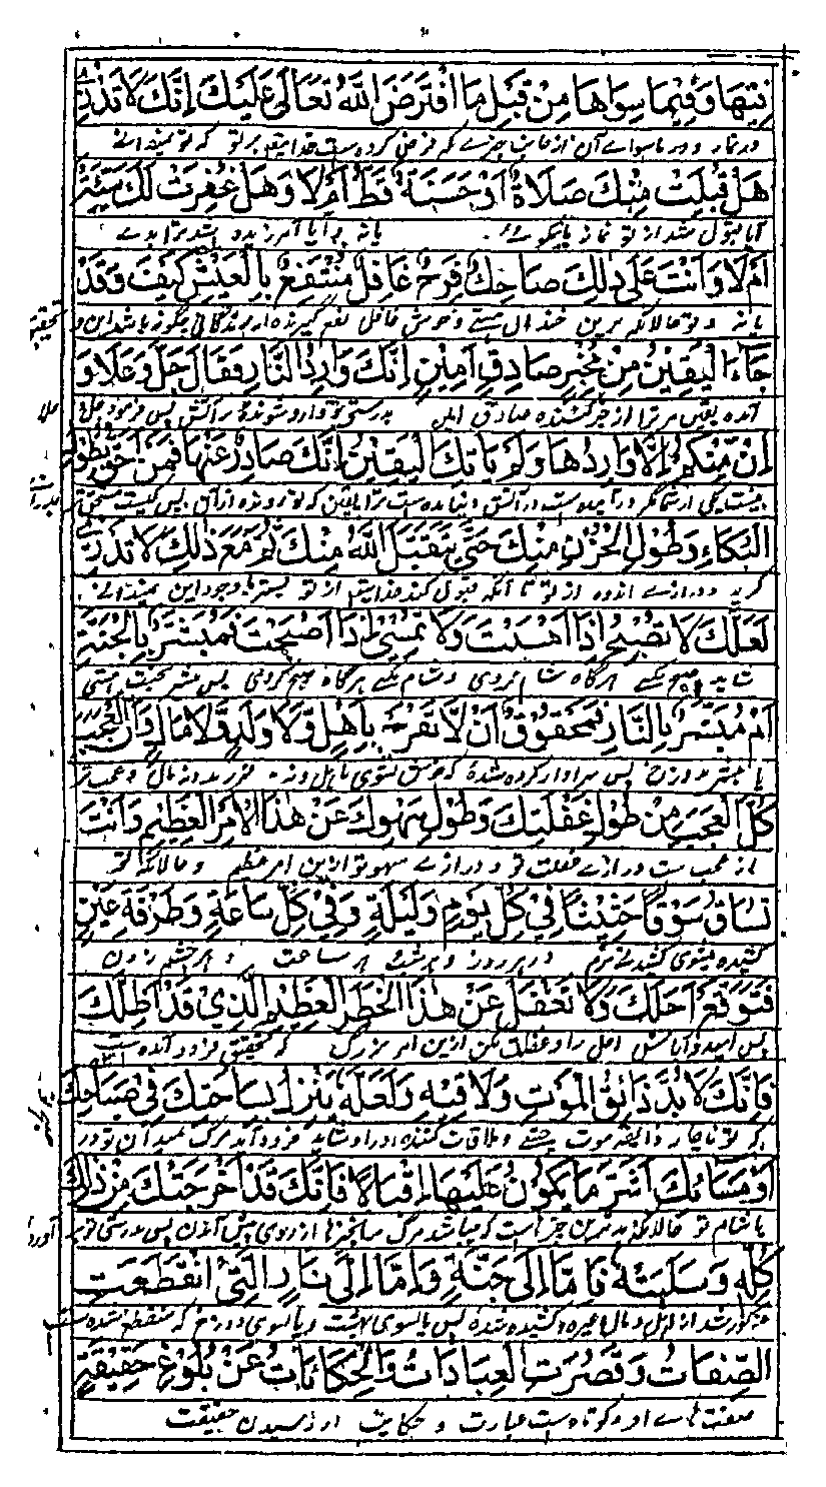 نِيَّتِهَا وَفِيمَا سِوَاهَا مِنْ قِبَلِ مَا افْتَرَضَ اللّٰهُ تَعَالٰى عَلَيْكَ اِنَّكَ لَا تَدْرِيْ
در نماز و در ماسوای آن از جانب چیزے که فرض کرده ست خدایتعالے بر تو که تو نمیدانے
هَلْ قُبِلَتْ مِنْكَ صَلَاةٌ اَوْ حَسَنَةٌ قَطُّ اَمْ لَا وَهَلْ غُفِرَتْ لَكَ سَيِّئَةٌ
آیا قبول شد از تو نماز یا نیکوئے یا نه و آیا آمرزیده شد ترا بدے
اَمْ لَا وَاَنْتَ عَلٰى ذٰلِكَ ضَاحِكٌ فَرِحٌ غَافِلٌ مُنْتَفِعٌ بِالْعَيْشِ كَيْفَ وَقَدْ
یا نه و تو حالانکه برین خندان هستے و خوش غافل نفع گیرنده از زندگانی چگونه باشد این و تحقیق
جَاءَ الْيَقِيْنُ مِنْ مُخْبِرٍ صَادِقٍ اَمِيْنٍ اِنَّكَ وَارِدُ النَّارِ فَقَالَ جَلَّ وَعَلَا وَ
آمده یقین مر ترا از خبر کننده صادق امین بدرستی تو وارد شونده بر آتش پس فرمود جل و علا
اِنْ مِّنْكُمْ اِلَّا وَارِدُهَا وَلَمْ يَأْتِكَ الْيَقِيْنُ اِنَّكَ صَادِرٌ عَنْهَا فَمَنْ اَحَقُّ بِطُوْلِ
نیست یکی از شما مگر در آینده ست در آتش و نیامده ست ترا یقین که تو رونده از آن پس کیست مستحق تر
الْبُكَاءِ وَطُوْلِ الْحُزْنِ مِنْكَ حَتّٰى يَتَقَبَّلَ اللّٰهُ مِنْكَ ثُمَّ مَعَ ذٰلِكَ لَا تَدْرِيْ
گریه و درازے اندوه از تو تا آنکه قبول کند خدایتعالے از تو پستر با وجود این نمیدانے
لَعَلَّكَ لَا تُصْبِحُ اِذَا اَمْسَيْتَ وَلَا تُمْسِيْ اِذَا اَصْبَحْتَ فَمُبَشَّرٌ بِالْجَنَّةِ
شاید صبح نکنے هرگاه شام کردی و شام نکنے هرگاه صبح کردی پس مبشر بجنت هستی
اَمْ مُبَشَّرٌ بِالنَّارِ فَمَحْقُوْقٌ اَنْ لَّا تَفْرَحَ بِاَهْلٍ وَّلَا وَلَدٍ وَّلَا مَالٍ وَاِنَّ الْعَجَبَ
یا مبشر بدوزخ پس سزاوار کرده شده که خوش نشوی باهل و نه فرزند و نه مال و عجب تر
كُلَّ الْعَجَبِ مِنْ طُوْلِ غَفْلَتِكَ وَطُوْلِ سَهْوِكَ عَنْ هٰذَا الْاَمْرِ الْعَظِيْمِ وَاَنْتَ
از عجب ست درازے غفلت تو و درازے سهو تو ازین امر عظیم و حالانکه تو
تُسَاقُ سَوْقًا حَثِيْثًا فِيْ كُلِّ يَوْمٍ وَلَيْلَةٍ وَفِيْ كُلِّ سَاعَةٍ وَطَرْفَةِ عَيْنٍ
کشیده میشوی کشیدنے نرم در هر روز و هر شب و هر ساعت و هر چشم زدن
فَتَوَقَّعْ اَجَلَكَ وَلَا تَغْفُلْ عَنْ هٰذَا الْخَطَرِ الْعَظِيْمِ الَّذِيْ قَدْ اَظَلَّكَ
پس امیدوار باش اجل را و غفلت مکن ازین امر بزرگ که تحقیق فرود آمده ست
فَاِنَّكَ لَا بُدَّ ذَائِقُ الْمَوْتِ وَلَاقِيْهِ وَلَعَلَّهُ يَنْزِلُ بِسَاحَتِكَ فِيْ صَبَاحِكَ
که تو ناچار ذائقه موت هستے و ملاقات کننده او را و شاید فرود آید مرگ بمیدان تو در
اَوْ مَسَائِكَ اَشَرَّ مَا يَكُوْنُ عَلَيْهَا اِقْبَالًا فَاِنَّكَ قَدْ اُخْرِجْتَ مِنْ ذٰلِكَ
یا شام تو حالانکه بدترین چیز است که میباشد مرگ از روی پیش آمدن پس بدرستی تو
كُلِّهِ وَسُلِبْتَهُ فَاِمَّا اِلٰى جَنَّةٍ وَاِمَّا اِلٰى نَارٍ الَّتِيْ انْقَطَعَتِ
از اهل و مال و غیره و کشیده شده پس یا بسوی بهشت و یا بسوی دوزخ که منقطع شده ست
الصِّفَاتُ وَقَصُرَتِ الْعِبَادَاتُ وَالْحِكَايَاتُ عَنْ بُلُوْغِ حَقِيْقَةِ
صفت هاے او و کوتاه ست عبارت و حکایت از رسیدن حقیقت